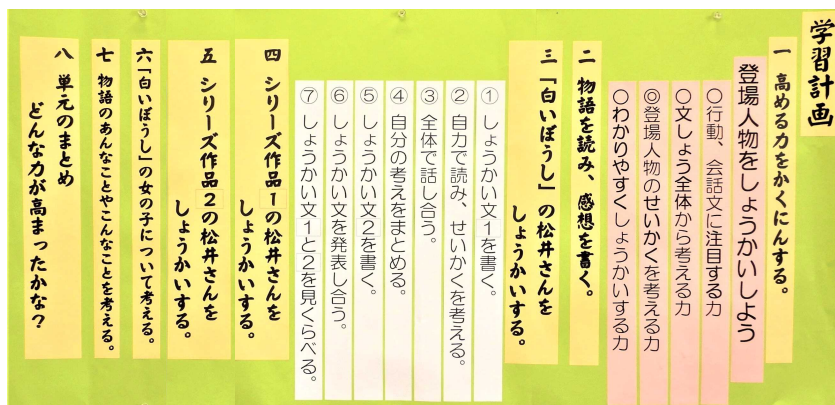 学習計画
一 高める力をかくにんする。
登場人物をしょうかいしよう
○行動、会話文に注目する力
○文しょう全体から考える力
◎登場人物のせいかくを考える力
○わかりやすくしょうかいする力
二 物語を読み、感想を書く。
三 「白いぼうし」の松井さんを
しょうかいする。
① しょうかい文1を書く。
② 自力で読み、せいかくを考える。
③ 全体で話し合う。
④ 自分の考えをまとめる。
⑤ しょうかい文2を書く。
⑥ しょうかい文を発表し合う。
⑦ しょうかい文1と2を見くらべる。
四 シリーズ作品1の松井さんを
しょうかいする。
五 シリーズ作品2の松井さんを
しょうかいする。
六 「白いぼうし」の女の子について考える。
七 物語のあんなことやこんなことを考える。
八 単元のまとめ
どんな力が高まったかな?